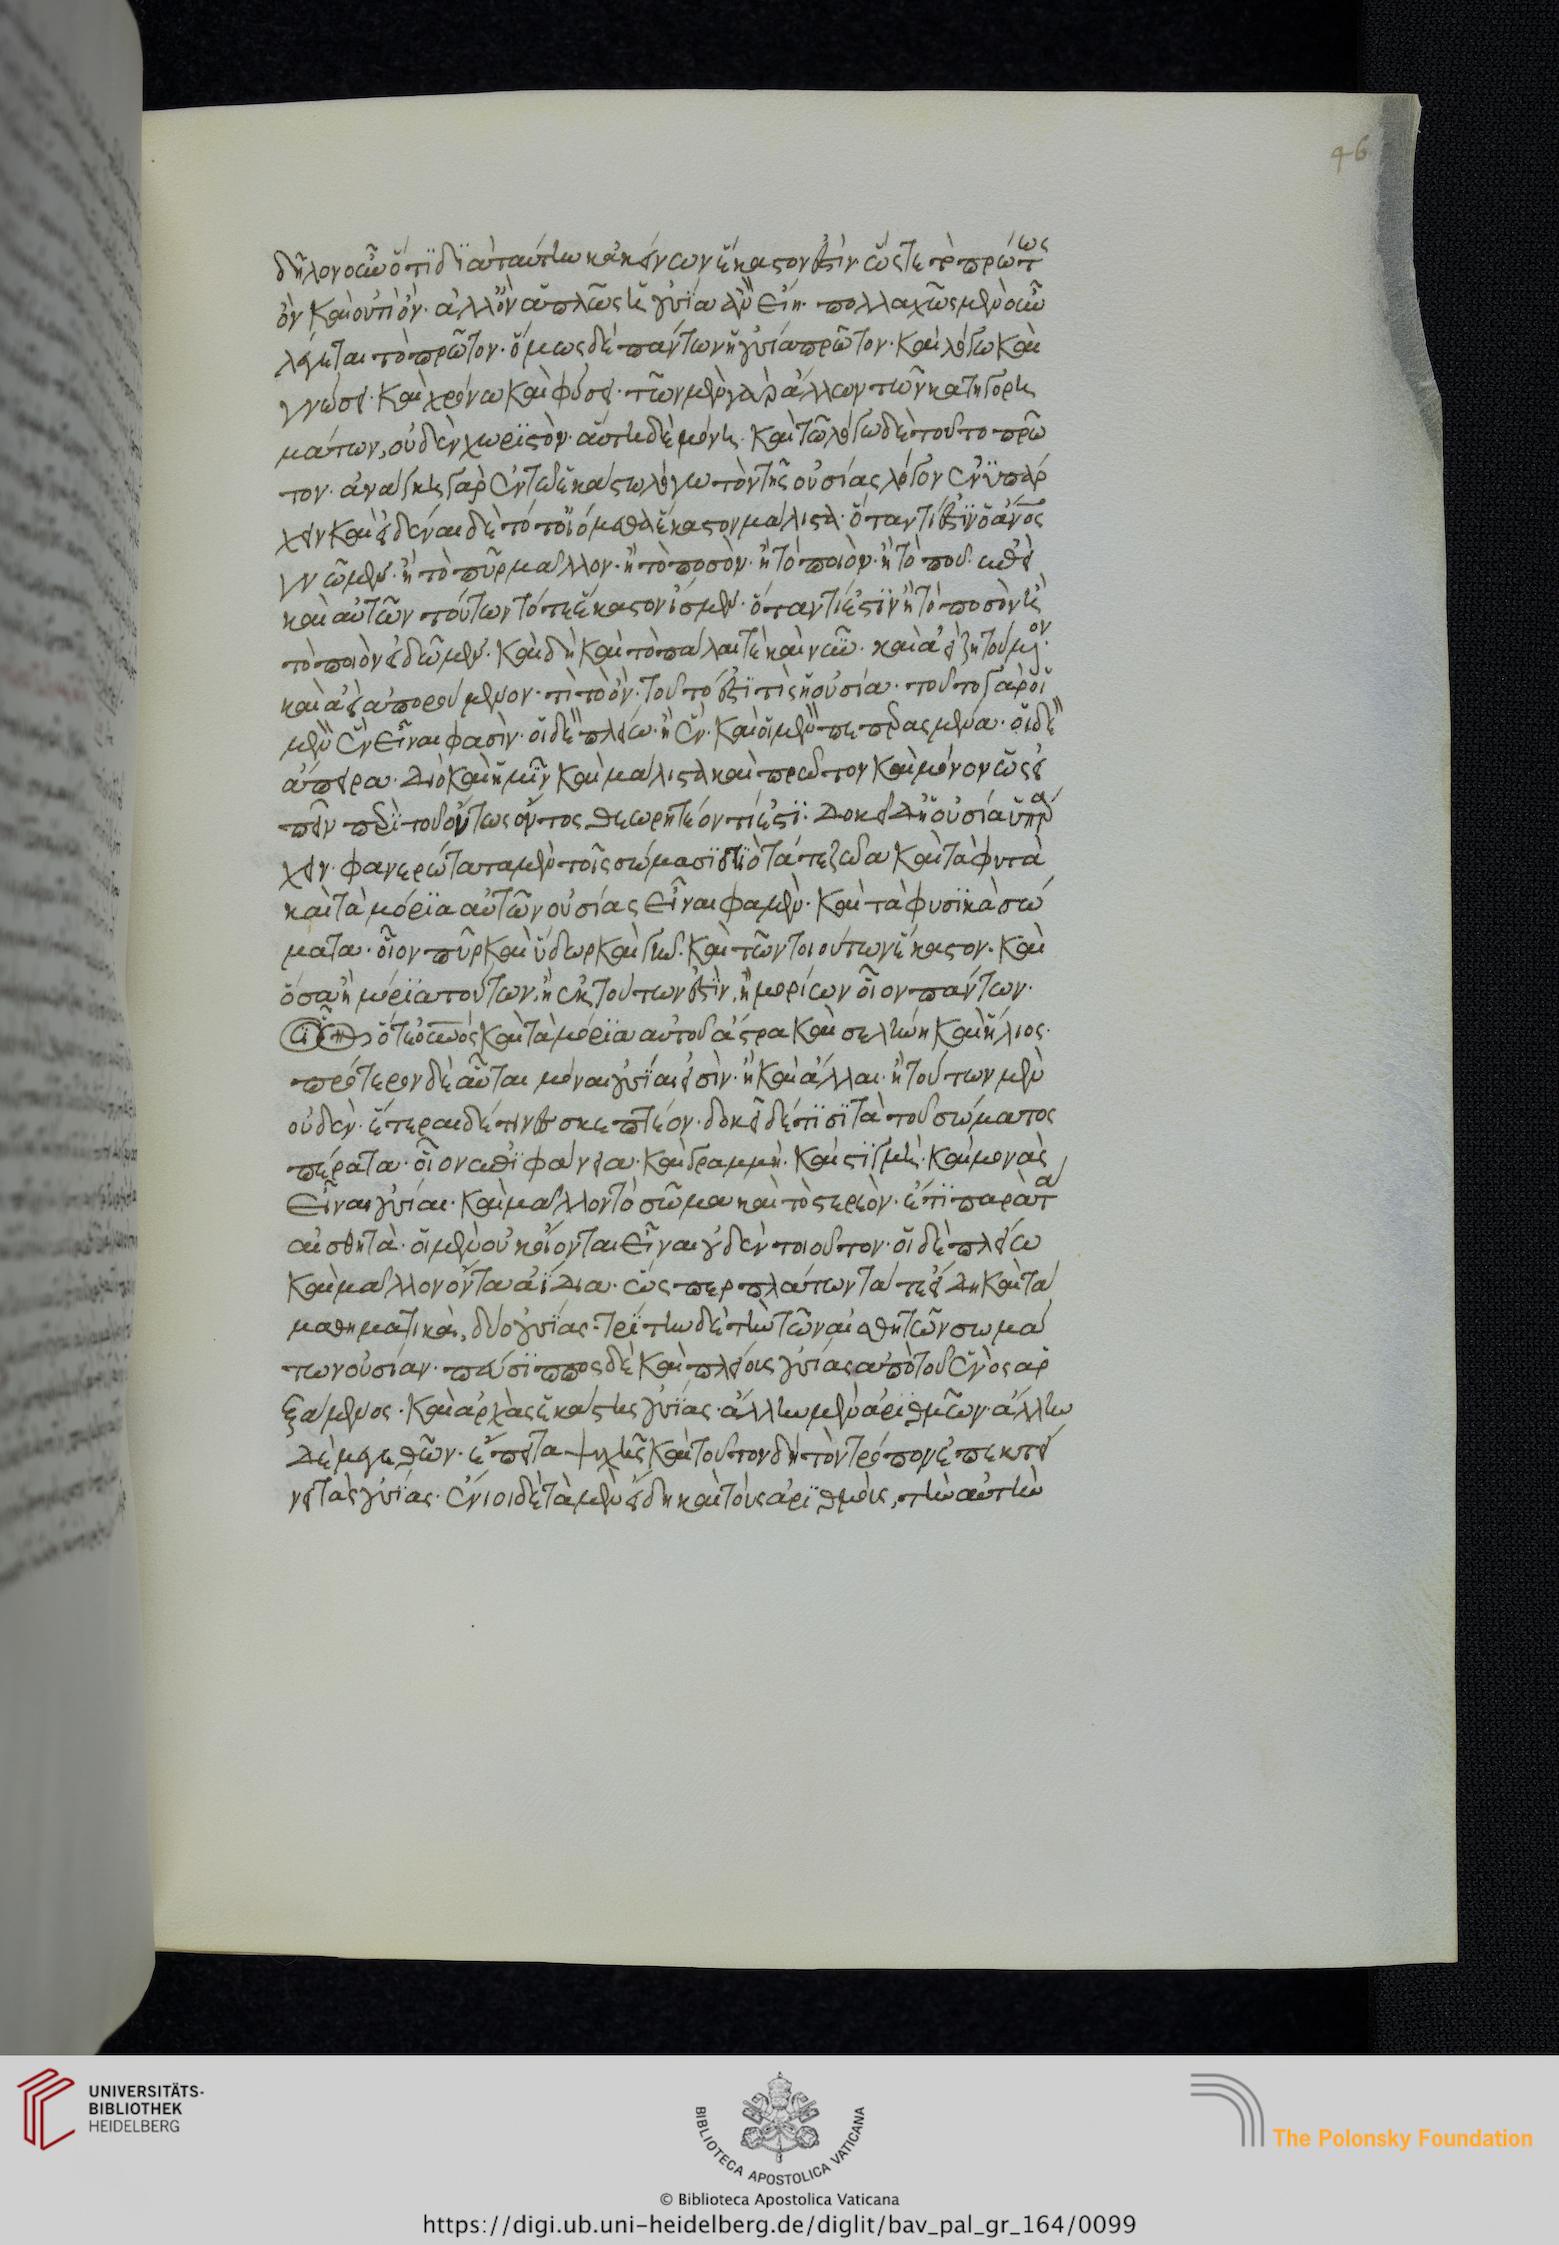 46
δῆλον οὖν ὅτι διὰ ταύτην κἀκείνων ἕκαστόν ἐστιν ὥστε τὸ πρώτως
ὂν καὶ οὐ τὶ ὄν· ἀλλ' ὂν ἁπλῶς ἡ οὐσία ἂν εἴη· πολλαχῶς μὲν οὖν
λέγεται τὸ πρῶτον· ὅμως δὲ πάντων ἡ οὐσία πρῶτον· καὶ λόγω καὶ
γνώσει· καὶ χρόνω καὶ φύσει· τῶν μὲν γὰρ ἄλλων τῶν κατηγορη
μάτων, οὐδὲν χωριστόν· αὕτη δὲ μόνη· καὶ τῶ λόγω δὲ τοῦτο πρῶ
τον· ἀνάγκη γὰρ ἐν τῶ ἑκάστω λόγω τὸν τῆς οὐσίας λόγον ἐνυπάρ
χειν καὶ εἰδέναι δὲ τότ' οἰόμεθα ἕκαστον μάλιστα· ὅταν τί ἐστιν ὁ ἄνος
γνῶμεν· ἢ τὸ πῦρ μᾶλλον· ἢ τὸ ποσὸν· ἢ τὸ ποιὸν· ἢ τὸ ποῦ· ἐπεὶ
καὶ αὐτῶν τούτων τότε ἕκαστον ἴσμεν· ὅταν τί ἐστιν ἢ τὸ ποσὸν ἢ
τὸ ποιὸν εἰδῶμεν· καὶ δὴ καὶ τὸ πάλαι τὲ καὶ νῦν· καὶ ἀεὶ ζητούμενον·
καὶ ἀεὶ ἀπορούμενον· τί τὸ ὄν· τοῦτό ἐστι τίς ἡ οὐσία· τοῦτο γὰρ οἱ
μὲν ἓν εἶναι φασὶν· οἱ δὲ πλείω· ἢ ἕν· καὶ οἱ μὲν πεπερασμένα· οἱ δὲ
ἄπειρα· διὸ καὶ ἡμῖν καὶ μάλιστα καὶ πρῶτον καὶ μόνον ὡς εἰ
πεῖν περὶ τοῦ οὕτως ὄντος θεωρητέον τί ἐστι· δοκεῖ δ' ἡ οὐσία ὑπάρ
χειν· φανερώτατα μὲν τοῖς σώμασι διὸ τά τε ζῶα καὶ τὰ φυτὰ
καὶ τὰ μόρια αὐτῶν οὐσίας εἶναι φαμὲν· καὶ τὰ φυσικὰ σώ
ματα· οἷον πῦρ καὶ ὕδωρ καὶ γῆν· καὶ τῶν τοιούτων ἕκαστον· καὶ
ὅσα ἢ μόρια τούτων, ἢ ἐκ τούτων ἐστὶν, ἢ μορίων οἷον πάντων·
ὅ τε οὐνός καὶ τὰ μόρια αὐτοῦ ἄστρα καὶ σελήνη καὶ ἥλιος·
πρότερον δὲ αὗται μόναι οὐσίαι εἰσὶν· ἢ καὶ ἄλλαι· ἢ τούτων μὲν
οὐδὲν· ἕτεραι δέ τινες σκεπτέον· δοκεῖ δέ τισι τὰ τοῦ σώματος
πέρατα· οἷον ἐπιφάνεια· καὶ γραμμὴ· καὶ στιγμὴ· καὶ μονὰς
εἶναι οὐσίαι· καὶ μᾶλλον τὸ σῶμα καὶ τὸ στερεὸν· ἔτι παρὰ τὰ
αἰσθητὰ· οἱ μὲν οὐκ οἴονται εἶναι οὐδὲν τοιοῦτον· οἱ δὲ πλείω
καὶ μᾶλλον ὄντα ἀΐδια· ὥσπερ πλάτων τά τε εἴδη καὶ τὰ
μαθηματικὰ, δύο οὐσίας· τρίτην δὲ τὴν τῶν αἰσθητῶν σωμά
των οὐσίαν· πεύσιππος δὲ καὶ πλείους οὐσίας ἀπὸ τοῦ ἑνὸς ἀρ
ξάμενος· καὶ ἀρχὰς ἑκάστης οὐσίας· ἄλλην μὲν ἀριθμῶν· ἄλλην
δὲ μεγεθῶν· ἔπειτα ψυχῆς καὶ τοῦτον δὴ τὸν τρόπον ἐπεκτεί
νει τὰς οὐσίας· ἔνιοι δὲ τὰ μὲν εἴδη καὶ τοὺς ἀριθμοὺς, τὴν αὐτὴν
UNIVERSITÄTS-
BIBLIOTHEK
HEIDELBERG
BIBLIOTECA APOSTOLICA VATICANA
The Polonsky Foundation
© Biblioteca Apostolica Vaticana
https://digi.ub.uni-heidelberg.de/diglit/bav_pal_gr_164/0099